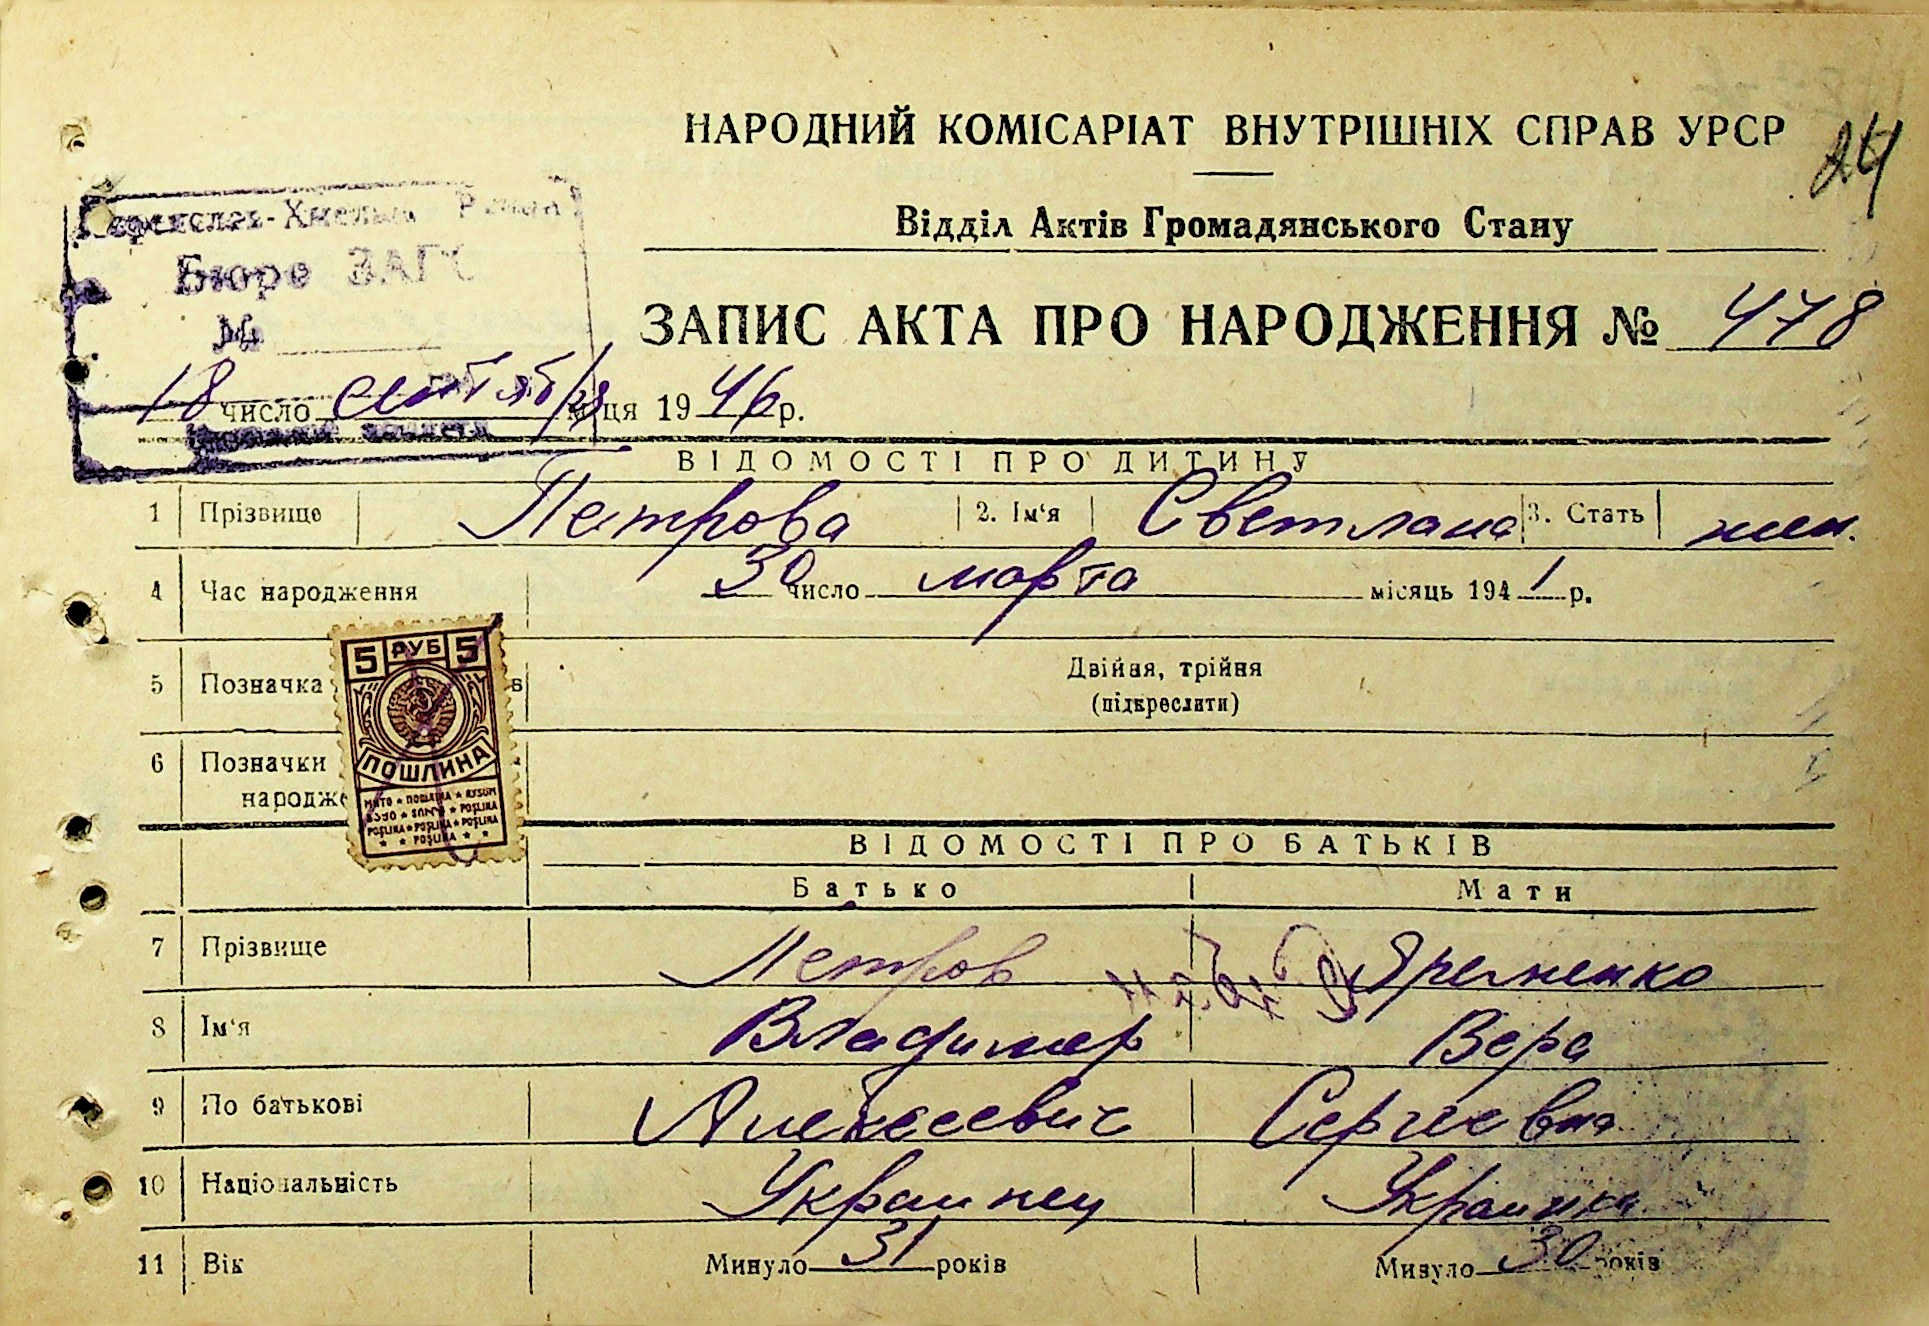 НАРОДНИЙ КОМІСАРІАТ ВНУТРІШНІХ СПРАВ УРСР
24
Відділ Актів Громадянського Стану
Переяслав-Хмельн
Бюро ЗАГС
№
ЗАПИС АКТА ПРО НАРОДЖЕННЯ № 478
18 число сентября м-ця 1946 р.
ВІДОМОСТІ ПРО ДИТИНУ
1 Прізвище Петрова 2. Ім'я Светлана 3. Стать жен.
4 Час народження 30 число марта місяць 1941 р.
5 Позначка в Двійня, трійня
(підкреслити)
6 Позначки
народже
5 РУБ 5
ПОШЛИНА
МИТО ★ ПОШЛИНА ★ RUSUM
POŞLINA ★ POŞLINA ★ POŞLINA
★ ★ POŞLINA ★ ★
ВІДОМОСТІ ПРО БАТЬКІВ
Батько Мати
7 Прізвище Петров Яременко
8 Ім'я Владимир Вера
9 По батькові Алексеевич Сергеевна
10 Національність Украинец Украинка
11 Вік Минуло 31 років Минуло 30 років